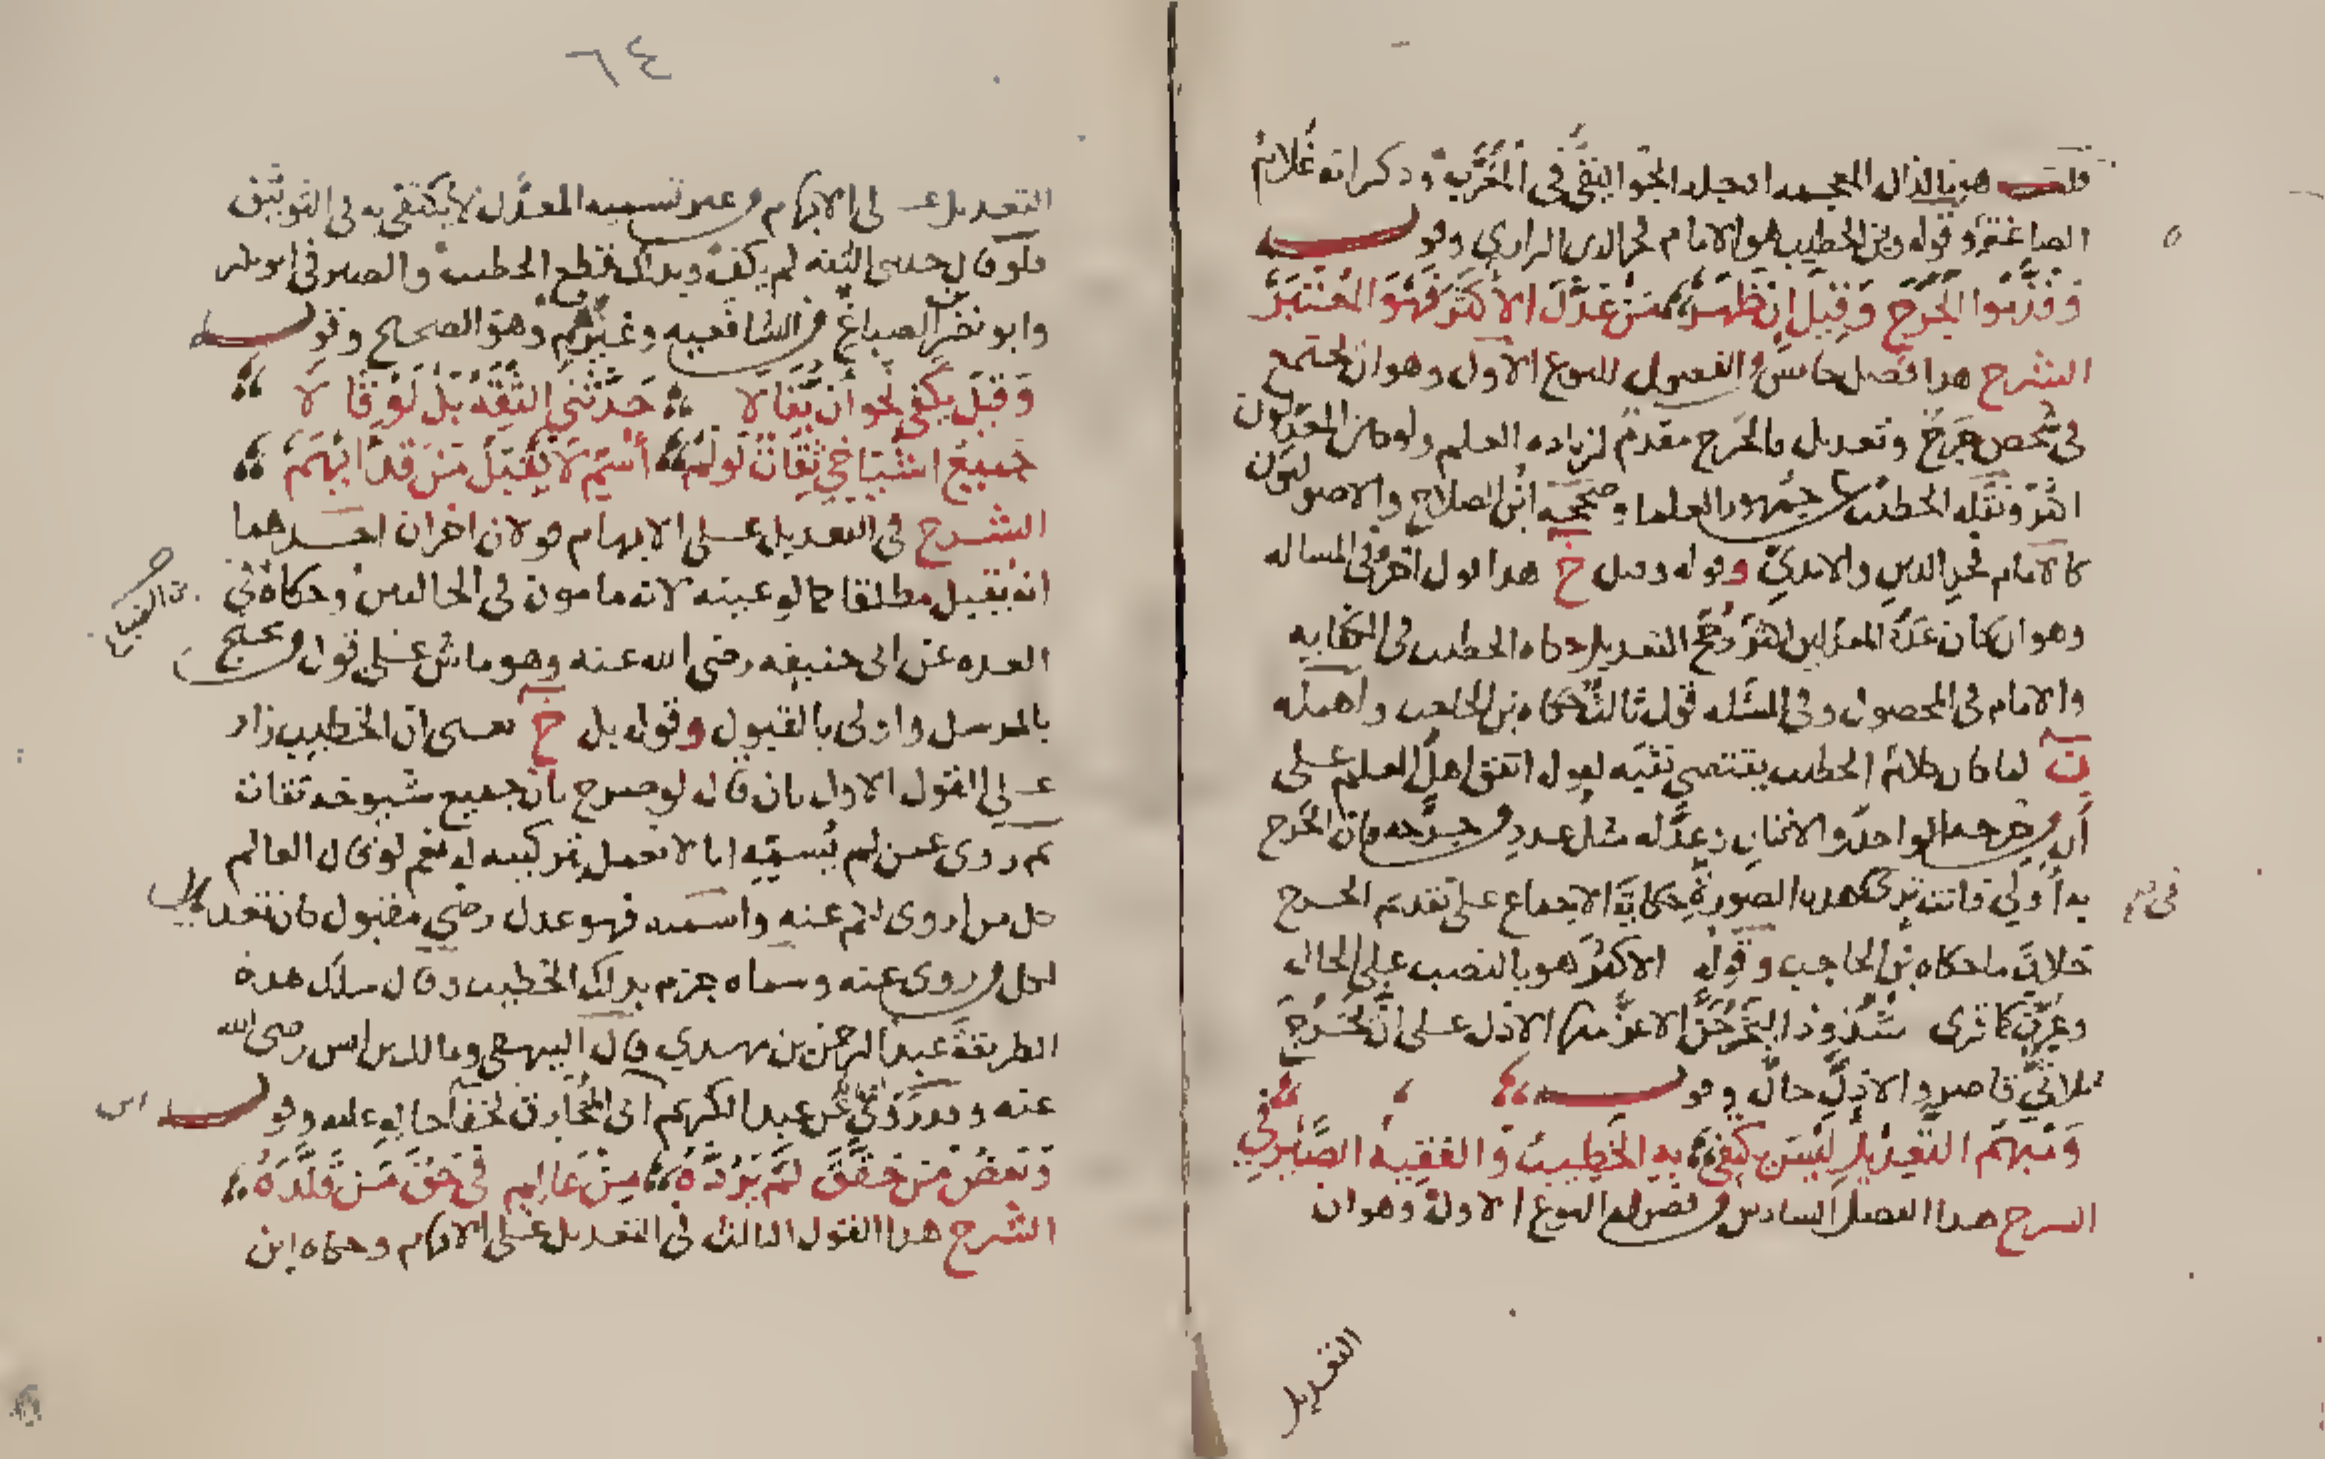 قلت هو بالذال المعجمه الجواليقي في المعرب وذكر انه غلام
الصاغه وقوله وبن الخطيب هو الامام فخر الدين الرازي وقو
وَقَدَّمُوا الْجَرْحَ وَقِيلَ إِنْ ظَهَرْ مَنْ عَدَّلَ الأَكْثَرَ فَهْوَ الْمُعْتَبَرْ
الشرح هدا فصل خامس من الفصول للنوع الاول وهو ان يجتمع
في شخص جرح وتعديل فالجرح مقدم لزياده العلم ولو كان المعدلون
اكثر ونقله الخطيب عن جمهور العلما وصححه ابن الصلاح والاصوليون
كالامام فخر الدين والامدي وقوله وقيل خ هدا قول اخر في المساله
وهو ان كان عدد المعدلين اكثر رجح التعديل حكاه الخطيب في الكفايه
والامام في المحصول وفي المسله قول ثالث حكاه بن الحاجب واهمله
ن لما كان كلام الخطيب يقتضي نفيه لقوله اتفق اهل العلم على
أن من جرحه الواحد والاثنان وعدله مثل عدد من جرحه فان الجرح
به أولى فاتت ترى هده الصورة حكاية الاجماع على تقديم الجرح
في م
خلاف ما حكاه بن الحاجب وقوله الاكثر هو بالنصب على الحال
وعرف كما ترى شذوذا ليخرجن الاعز منها الاذل على ان يخرج
ثلاثي قاصر والاذل حال وقو
وَمُبْهَمُ التَّعْدِيلِ لَيْسَ يَكْتَفِي بِهِ الْخَطِيبُ وَالْفَقِيهُ الصَّيْرَفِي
الشرح هدا الفصل السادس من فصول النوع الاول وهو ان
التعديل
٤٦
التعديل على الابهام من غير تسميه المعدل لا يكتفى به في التوثيق
فلو قال حدثني الثقه لم يكف وبدلك قطع الخطيب والصيرفي ابو بكر
وابو نصر بن الصباغ من الشافعيه وغيرهم وهو الصحيح وقو
وَقِيلَ يَكْفِي نَحْوُ أَنْ يُقَالا حَدَّثَنِي الثِّقَةُ بَلْ لَوْ قَالا
جَمِيعُ أَشْيَاخِي ثِقَاتٌ لَوْ لَمْ أُسَمِّ لا يُقْبَلُ مَنْ قَدْ أَبْهَمْ
الشرح في التعديل على الابهام قولان اخران احدهما
انه يقبل مطلقا كما لو عينه لانه مامون في الحالتين وحكاه في
بن الصباغ
العده عن ابي حنيفه رضي الله عنه وهو ماش على قول من يحتج
بالمرسل واولى بالقبول وقوله بل خ يعني ان الخطيب زاد
على القول الاول بان قال لو صرح بان جميع شيوخه ثقات
ثم روى عمن لم يسمه انا لا نعمل بتزكيته له نعم لو قال العالم
كل من اروي لكم عنه واسميه فهو عدل رضي مقبول كان تعديلا
لكل من روى عنه وسماه جزم بدلك الخطيب وقال سلك هده
الطريقة عبد الرحمن بن مهدي قال البيهقي ومالك بن انس رضي الله
عنه وقد روى عن عبد الكريم ابي المخارق لخفا حاله عليه وقو
وَبَعْضُ مَنْ حَقَّقَ لَمْ يَرُدَّهُ مِنْ عَالِمٍ فِي حَقِّ مَنْ قَلَّدَهُ
الشرح هدا القول الثالث في التعديل على الابهام وحكاه ابن